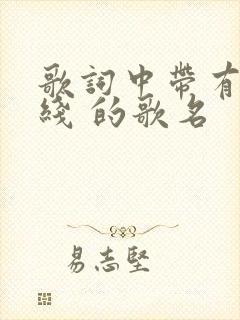 歌詞中帶有
綫 的歌名
易志堅